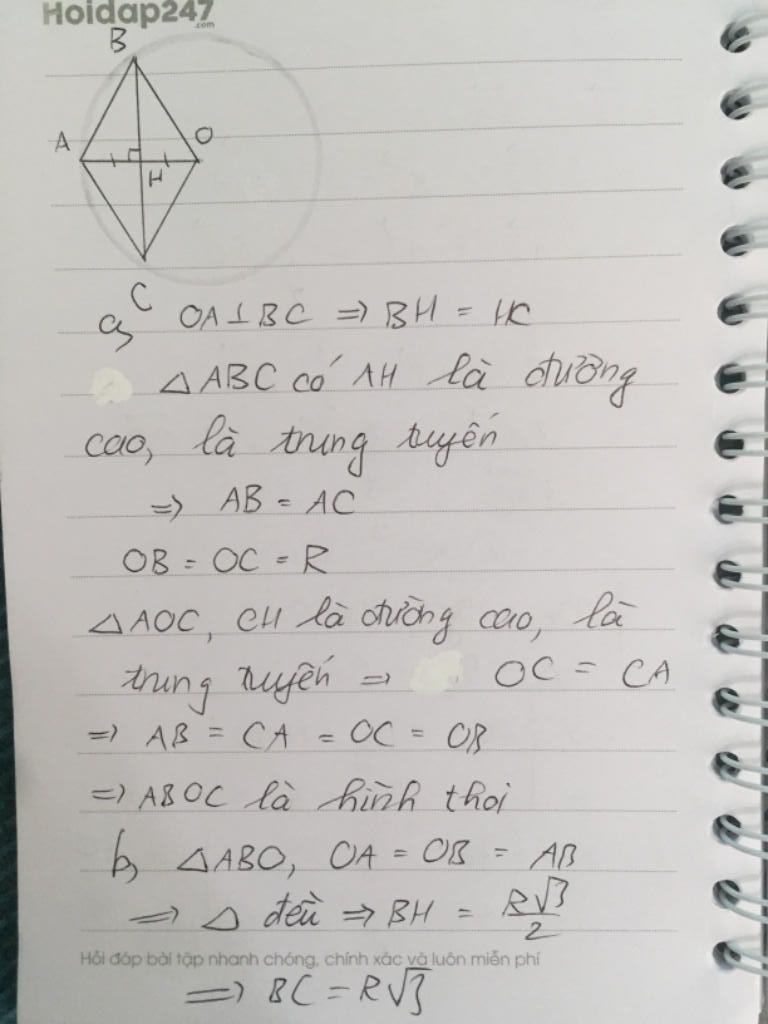 Hoidap247
.com
B
A
O
H
C
a, OA ⊥ BC => BH = HC
△ABC có AH là đường
cao, là trung tuyến
=> AB = AC
OB = OC = R
△AOC, CH là đường cao, là
trung tuyến => OC = CA
=> AB = CA = OC = OB
=> ABOC là hình thoi
b, △ABO, OA = OB = AB
=> △ đều => BH = R√3/2
Hỏi đáp bài tập nhanh chóng, chính xác và luôn miễn phí
=> BC = R√3